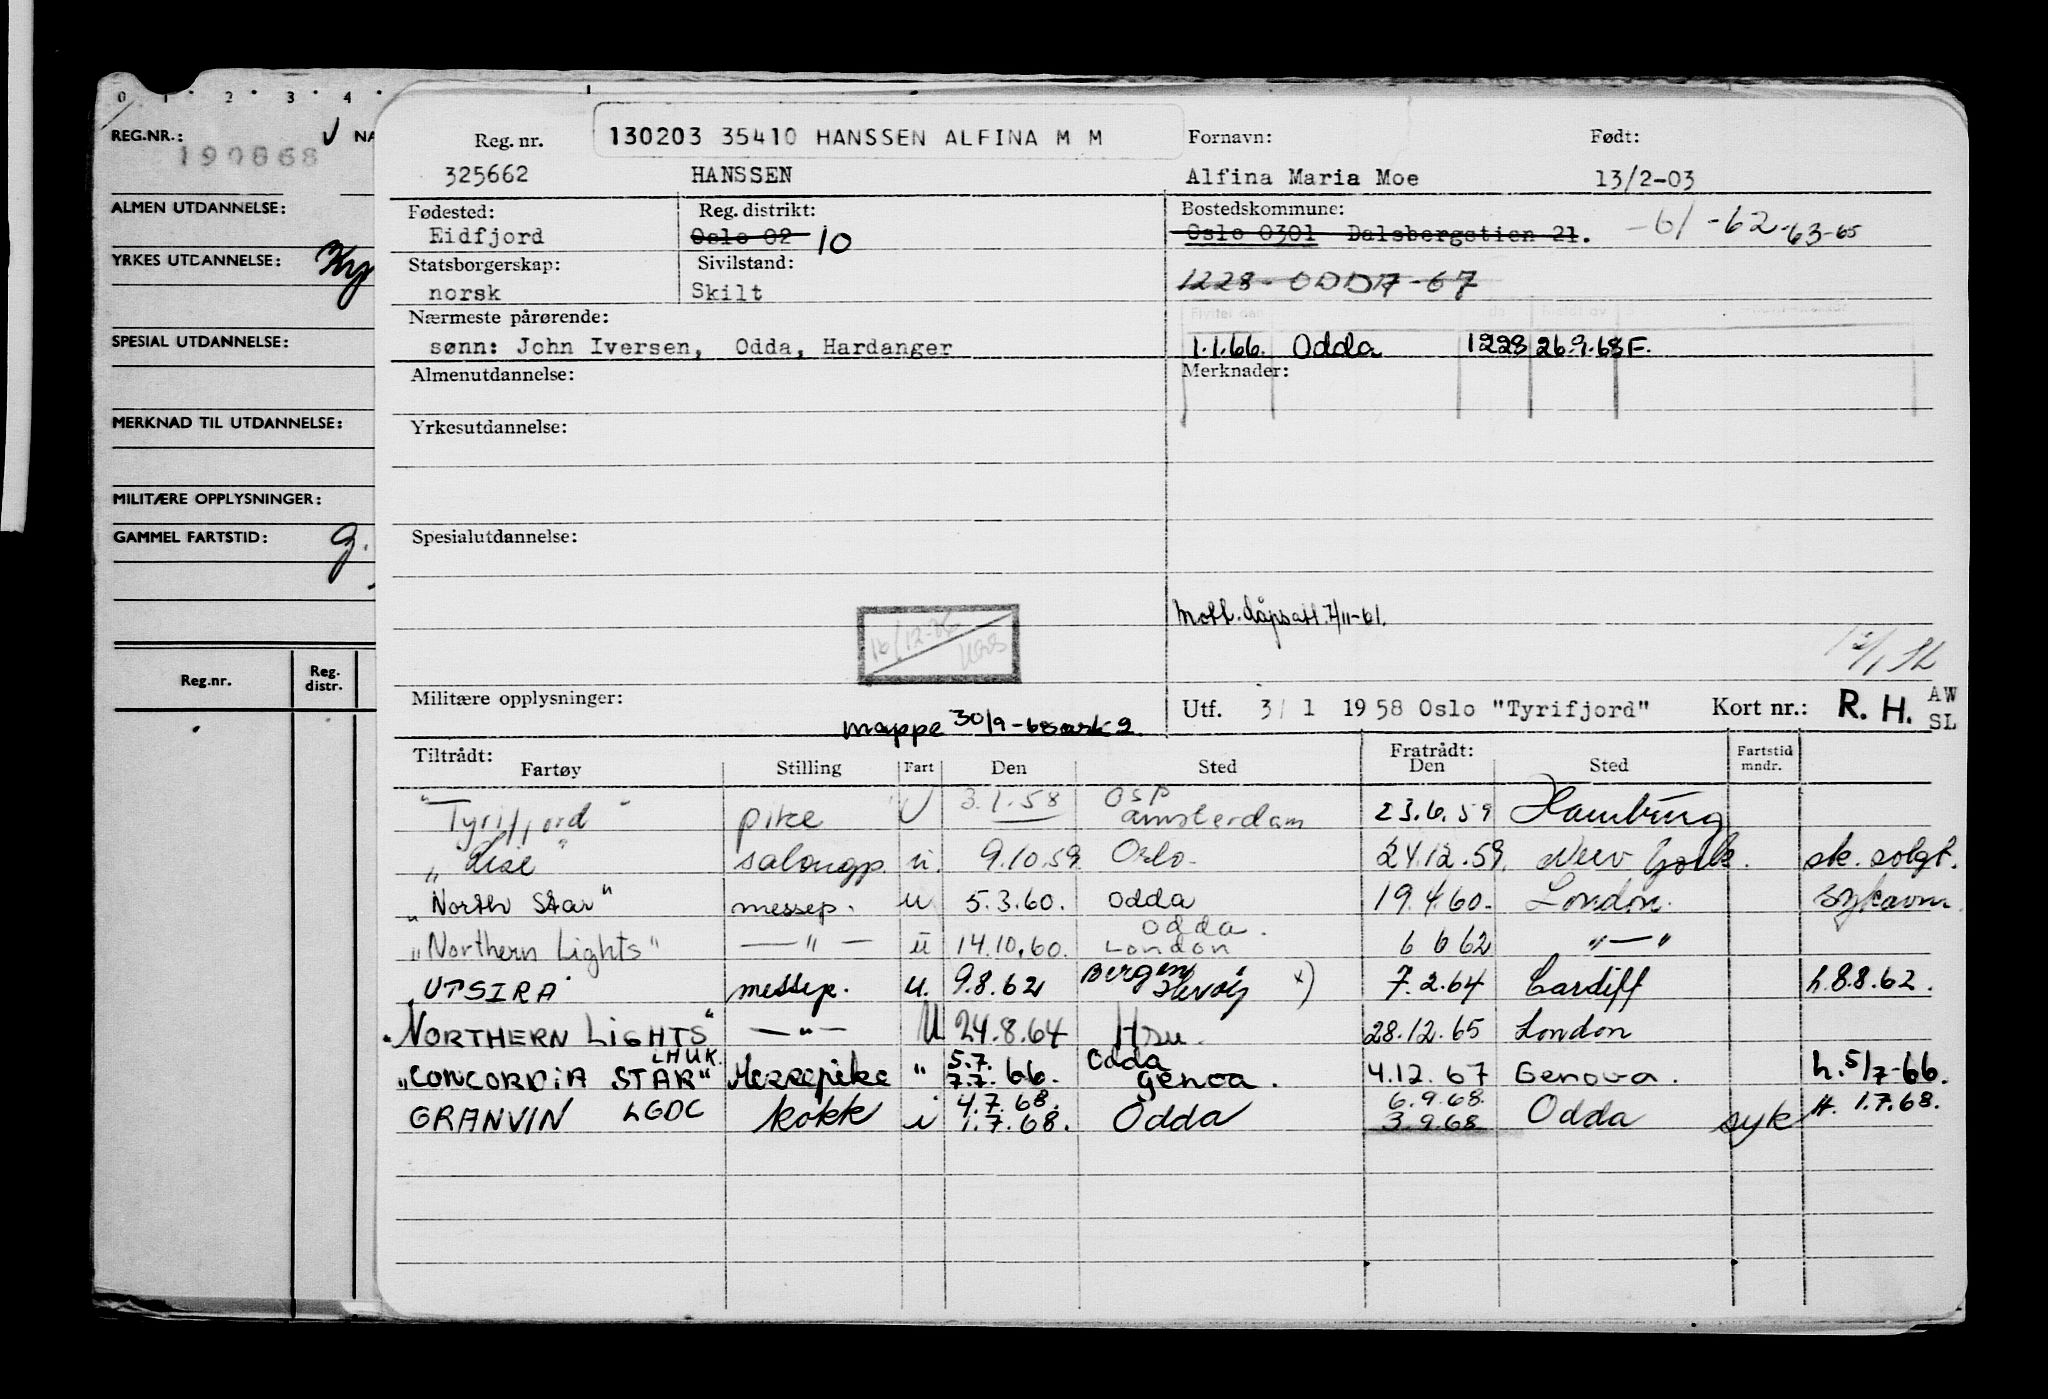 0 1 2 3 4
REG.NR.: NA
190868
ALMEN UTDANNELSE:
YRKES UTDANNELSE:
SPESIAL UTDANNELSE:
MERKNAD TIL UTDANNELSE:
MILITÆRE OPPLYSNINGER:
GAMMEL FARTSTID: g.
Reg.nr. Reg. distr.
Reg. nr. 130203 35410 HANSSEN ALFINA M M Fornavn: Født:
325662 HANSSEN Alfina Maria Moe 13/2-03
Fødested: Reg. distrikt: Bostedskommune:
Eidfjord Oslo 02 10 Oslo 0301 Dalsbergstien 21. -61 -62-63-65
Statsborgerskap: Sivilstand:
norsk Skilt 1228 - ODDA - 67
Nærmeste pårørende:
sønn: John Iversen, Odda, Hardanger 1.1.66. Odda 1228 26.9.68 F.
Almenutdannelse: Merknader:
Yrkesutdannelse:
Spesialutdannelse:
Mott. dåpsatt. 7/11-61.
16/12-06
Militære opplysninger: Utf. 3/1 1958 Oslo "Tyrifjord" Kort nr.: R. H. AW SL
mappe 30/9-68 ark 2.
Tiltrådt: Fratrådt:
Fartøy Stilling Fart Den Sted Den Sted Fartstid mndr.
"Tyrifjord" pike U 3.1.58 Osp Amsterdam 23.6.59 Hamburg
"Lise" salongp. u. 9.10.59. Oslo. 24.12.59. New York. sk. solgt.
"North Star" messep. u 5.3.60. Odda 19.4.60. London. sykavm.
"Northern Lights" —"— u 14.10.60. Odda. London 6 6 62 "—"
"UTSIRA" messep. u. 9.8.62 Bergen x) 7.2.64 Cardiff h.8.8.62.
"NORTHERN LIGHTS" —"— U 24.8.64 Hsu. 28.12.65 London
"CONCORDIA STAR" LHUK Messepike " 5.7. 7.7. 66. Odda Genoa. 4.12.67 Genova. h.5/7-66.
GRANVIN LGDC kokk i 4.7.68. 1.7.68. Odda 6.9.68. 3.9.68 Odda syk H. 1.7.68.